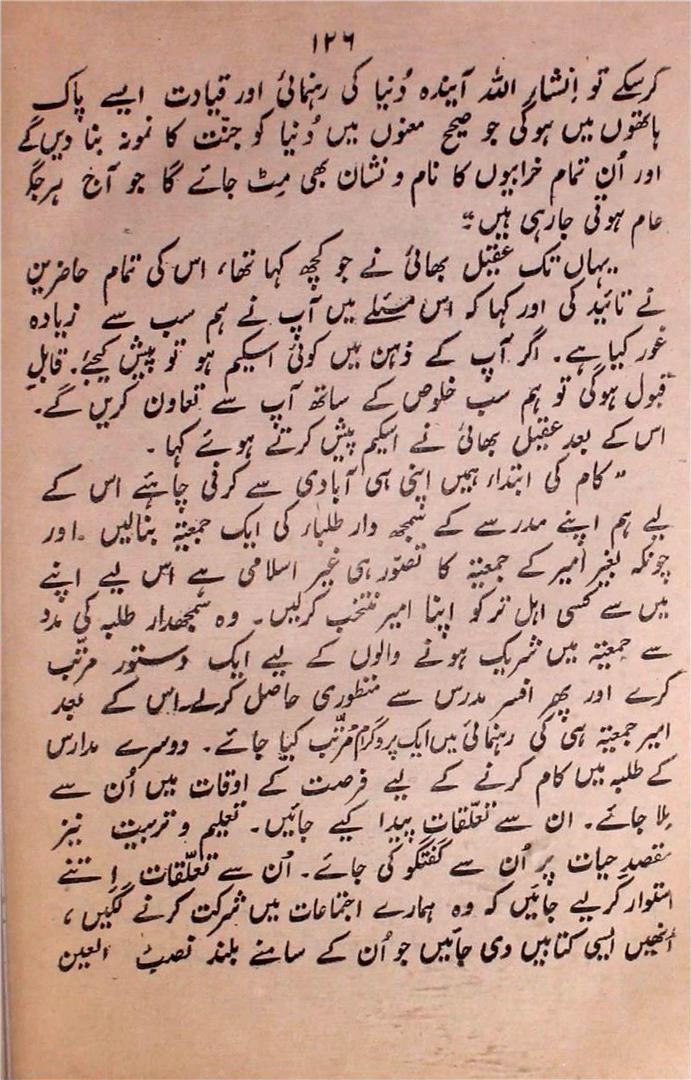 ۱۲۶
کرسکے تو اِنشاء اللہ آیندہ دُنیا کی رہنمائی اور قیادت ایسے پاک
ہاتھوں میں ہوگی جو صحیح معنوں میں دُنیا کو جنّت کا نمونہ بنا دیں گے
اور اُن تمام خرابیوں کا نام و نشان بھی مِٹ جائے گا جو آج ہر جگہ
عام ہوتی جارہی ہیں۔"
یہاں تک عقیل بھائی نے جو کچھ کہا تھا، اس کی تمام حاضرین
نے تائید کی اور کہا کہ اس مسئلے میں آپ نے ہم سب سے زیادہ
غور کیا ہے۔ اگر آپ کے ذہن میں کوئی اسکیم ہو تو پیش کیجئے۔ قابلِ
قبول ہوگی تو ہم سب خلوص کے ساتھ آپ سے تعاون کریں گے۔
اس کے بعد عقیل بھائی نے اسکیم پیش کرتے ہوئے کہا ۔
"کام کی ابتداء ہمیں اپنی ہی آبادی سے کرنی چاہئے اس کے
لیے ہم اپنے مدرسے کے سمجھ دار طلباء کی ایک جمعیۃ بنالیں ۔اور
چونکہ بغیر امیر کے جمعیۃ کا تصوّر ہی غیر اسلامی ہے اس لیے اپنے
میں سے کسی اہل تر کو اپنا امیر منتخب کرلیں۔ وہ سمجھدار طلبہ کی مدد
سے جمعیۃ میں شریک ہونے والوں کے لیے ایک دستور مرتّب
کرے اور پھر افسر مدرس سے منظوری حاصل کرلے۔اس کے بعد
امیر جمعیۃ ہی کی رہنمائی میں ایک پروگرام مرتّب کیا جائے۔ دوسرے مدارس
کے طلبہ میں کام کرنے کے لیے فرصت کے اوقات میں اُن سے
مِلا جائے۔ ان سے تعلّقات پیدا کیے جائیں۔ تعلیم و تربیت نیز
مقصدِ حیات پر اُن سے گفتگو کی جائے۔ اُن سے تعلّقات اِتنے
استوار کرلیے جائیں کہ وہ ہمارے اجتماعات میں شرکت کرنے لگیں،
اُنھیں ایسی کتابیں دی جائیں جو اُن کے سامنے بلند نصبُ العین